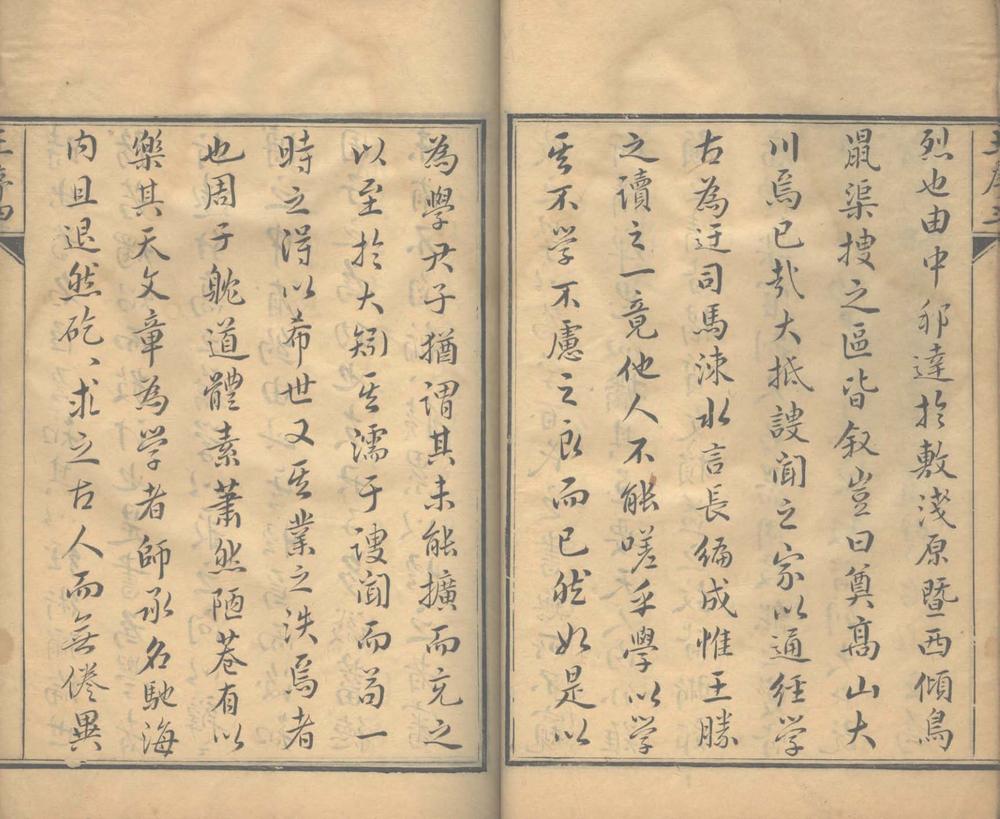 烈也由中邦達於敷淺原暨西傾鳥
鼠渠搜之區皆叙豈曰奠高山大
川焉已哉大抵謏聞之家以通經學
古為迂司馬涑水言長編成惟王勝
之讀之一竟他人不能嗟乎學以學
其不學不慮之良而已然如是以
為學尹子猶謂其未能擴而充之
以至於大矧其濡于謏聞而苟一
時之得以希世又其業之泆焉者
也周子躭道體素蕭然陋巷有以
樂其天文章為學者師承名馳海
内且退然矻、求之古人而無倦異